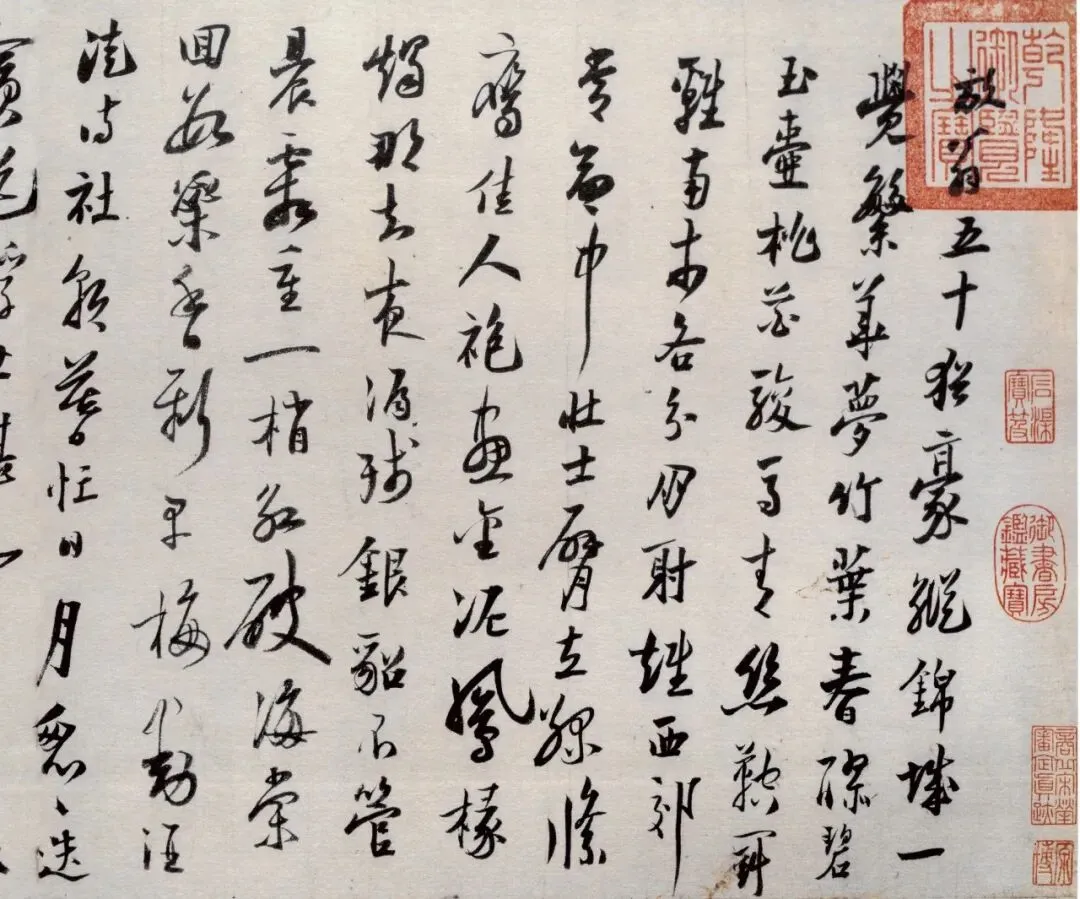 乾隆御覽之寶
石渠寶笈
御書房鑑藏寶
放翁五十猶豪縱錦城一
覺繁華夢竹葉春醪碧
玉壺桃花駿馬青絲鞚鬭
雞南市各分朋射雉西郊
常命中壯士臂立綠絛
鷹佳人袍畫金泥鳳椽
燭那知夜漏殘銀貂不管
晨霜重一梢紅破海棠
回數蕊香新早梅動酒
徒詩社朝暮忙日月匆匆迭
賓送浮世堪